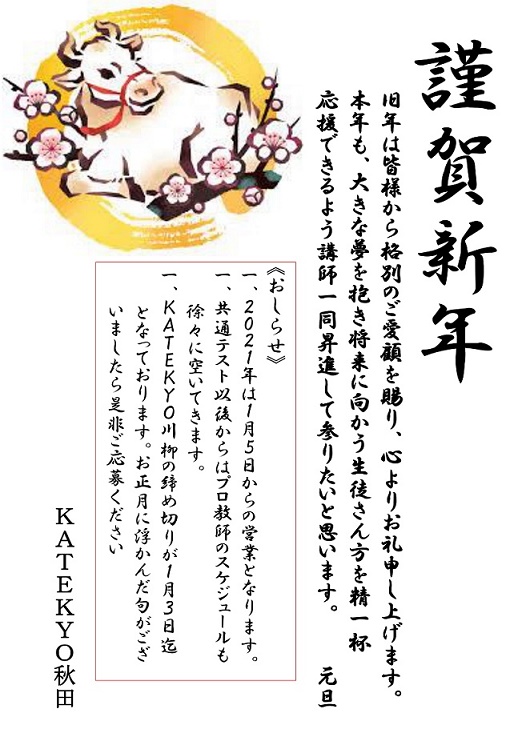 謹賀新年
旧年は皆様から格別のご愛顧を賜り、心よりお礼申し上げます。
本年も、大きな夢を抱き将来に向かう生徒さん方を精一杯
応援できるよう講師一同昇進して参りたいと思います。 元旦
《おしらせ》
一、2021年は1月5日からの営業となります。
一、共通テスト以後からはプロ教師のスケジュールも
徐々に空いてきます。
一、KATEKYO川柳の締め切りが1月3日迄
となっております。お正月に浮かんだ句がござ
いましたら是非ご応募ください
KATEKYO秋田